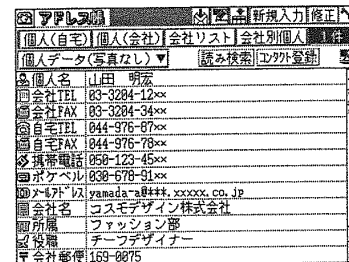 アドレス帳 新規入力 修正
個人(自宅) 個人(会社) 会社リスト 会社別個人 1件
個人データ(写真なし)▼ 読み検索 コンタクト登録
個人名 山田 明宏
会社TEL 03-3204-12××
会社FAX 03-3204-34××
自宅TEL 044-976-67××
自宅FAX 044-976-78××
携帯電話 050-123-45××
ポケベル 030-678-91××
メールアドレス yamada-a@***.xxxxx.co.jp
会社名 コスモデザイン株式会社
所属 ファッション部
役職 チーフデザイナー
会社郵便 169-0075